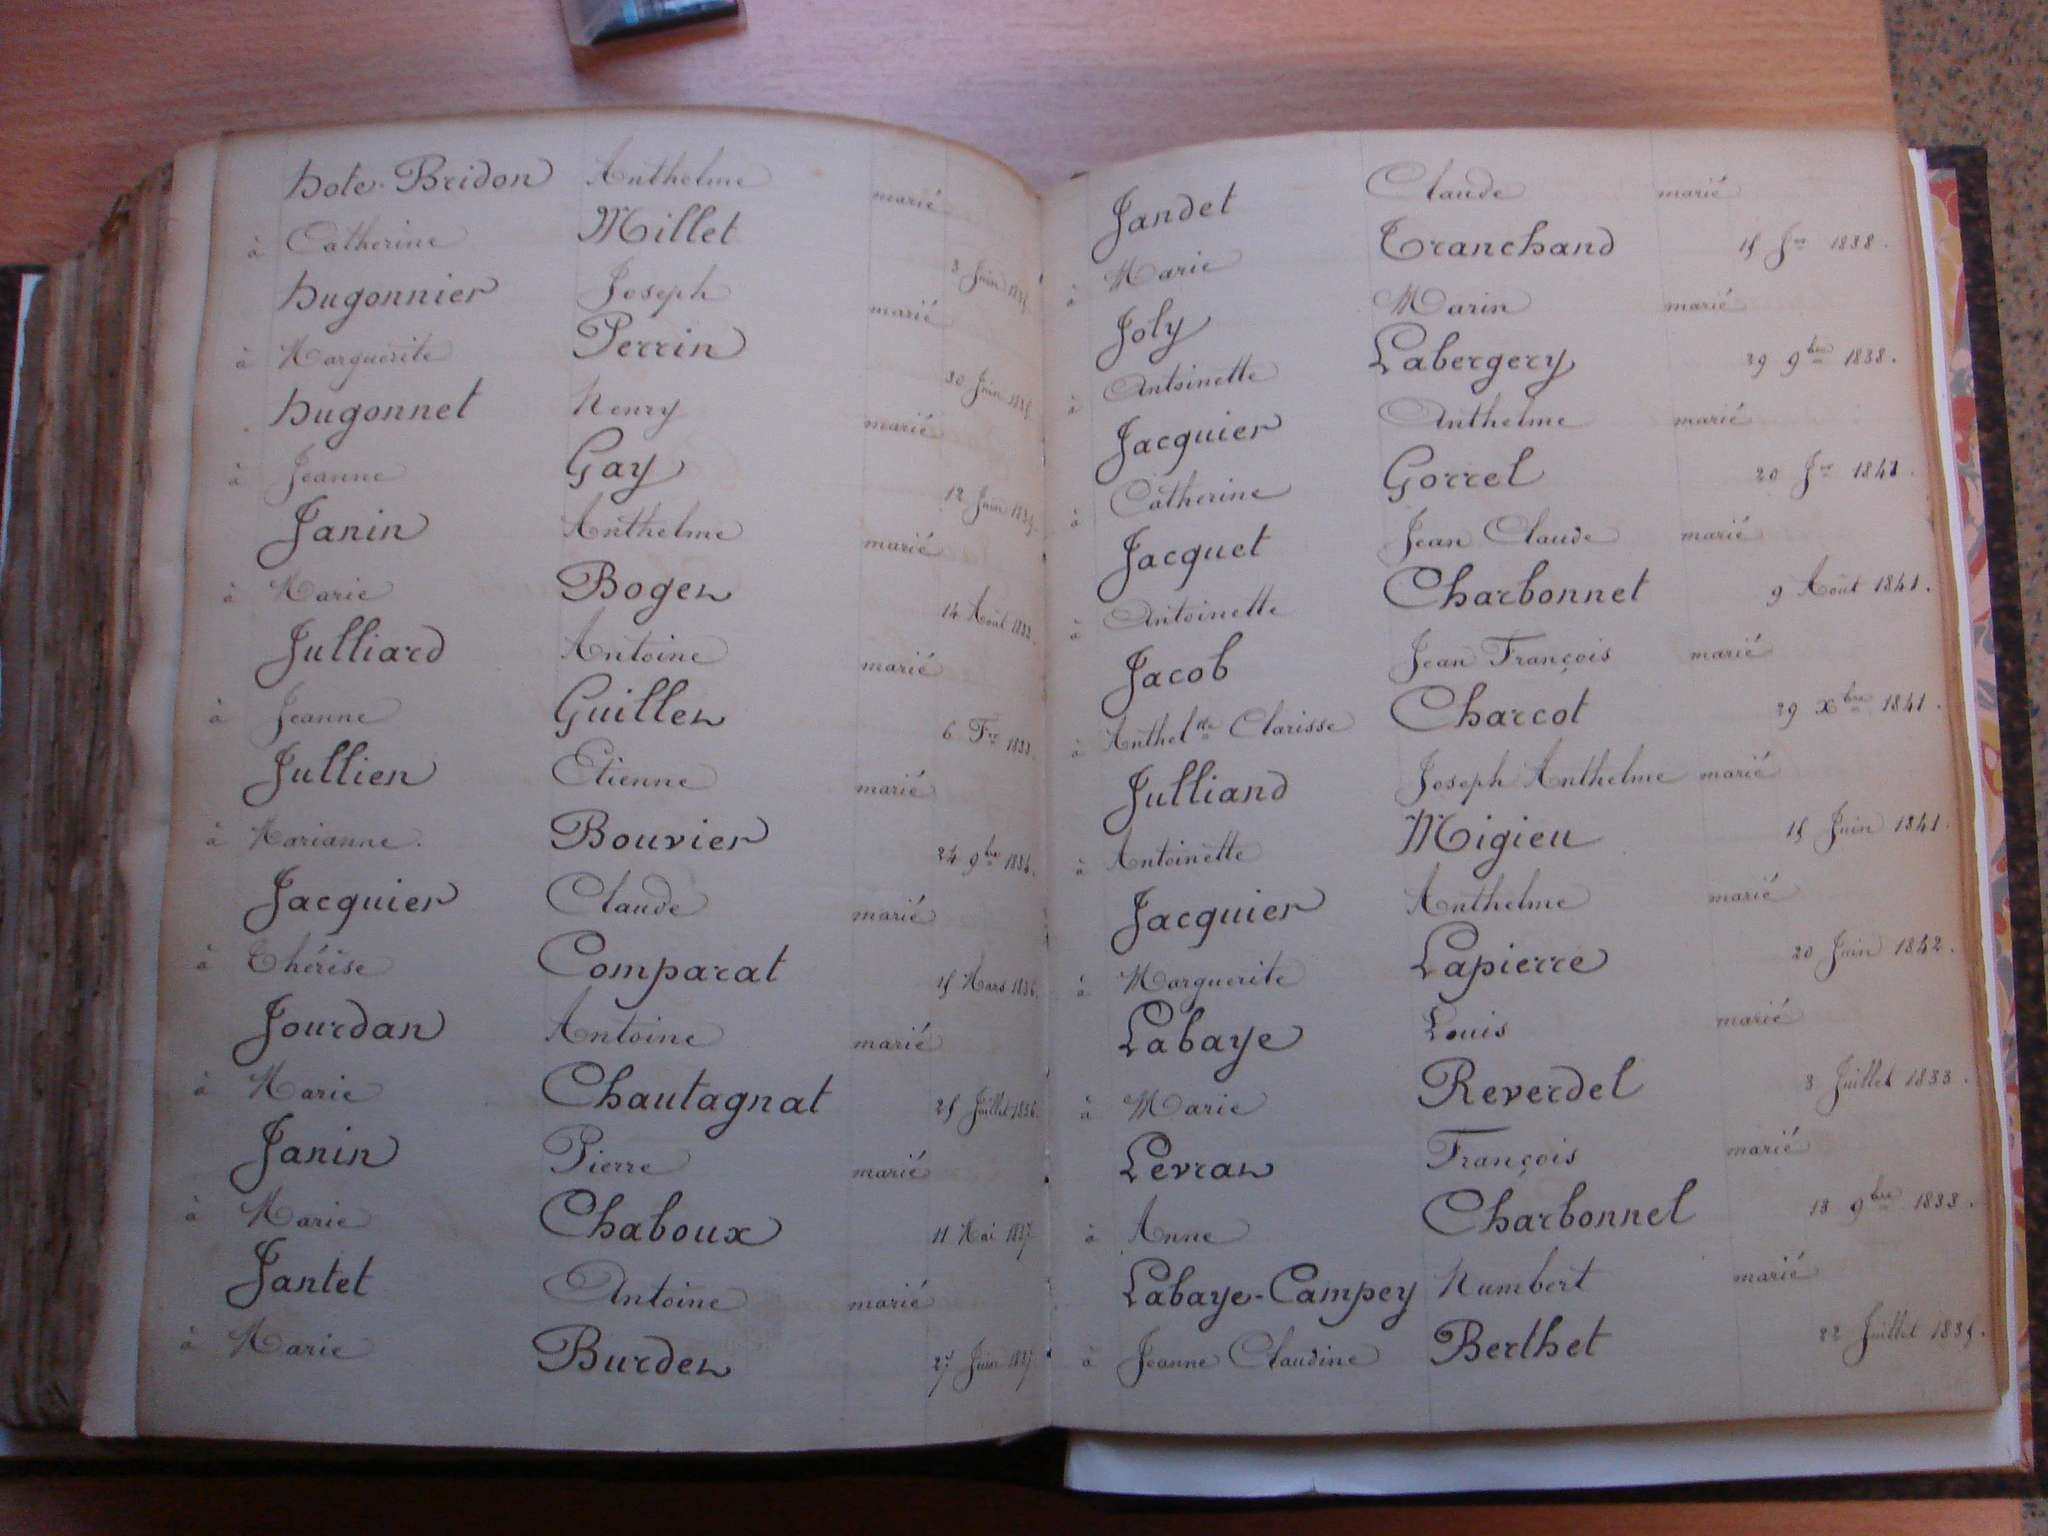 Hote-Bridon Anthelme marié
à Catherine Millet 3 Juin
Hugonnier Joseph marié
à Marguerite Perrin 30 Juin
Hugonnet Henry marié
à Jeanne Gay 12 Juin
Janin Anthelme marié
à Marie Boger 14 Août
Julliard Antoine marié
à Jeanne Guiller 6 Fer 1833
Jullien Etienne marié
à Marianne. Bouvier 24 9bre 1834.
Jacquier Claude marié
à Thérise Comparat 15 Mars 1836.
Jourdan Antoine marié
à Marie Chautagnat 25 Juillet 1836
Janin Pierre marié
à Marie Chaboux 11 Mai 1837
Jantet Antoine marié
à Marie Burder 27 Juin 1837
Jandet Claude marié
à Marie Tranchand 15 Jer 1838.
Joly Marin marié
à Antoinette Labergery 29 9bre 1838.
Jacquier Anthelme marié
à Catherine Gorrel 20 Jer 1841.
Jacquet Jean Claude marié
à Antoinette Charbonnet 9 Août 1841.
Jacob Jean François marié
à Anthelde Clarisse Charcot 29 Xbre 1841.
Julliand Joseph Anthelme marié
à Antoinette Migieu 15 Juin 1841.
Jacquier Anthelme marié
à Marguerite Lapierre 20 Juin 1842.
Labaye Louis marié
à Marie Reverdel 3 Juillet 1833.
Levrar François marié
à Anne Charbonnel 13 9bre 1833.
Labaye-Campey Humbert marié
à Jeanne Claudine Berthet 22 Juillet 1835.